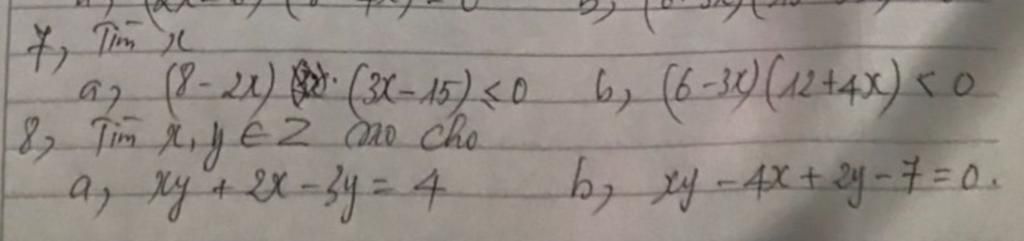 7, Tìm x
a, (8-2x) . (3x-15) ≤ 0 b, (6-3x)(12+4x) < 0
8, Tìm x, y ∈ Z sao cho
a, xy + 2x - 3y = 4 b, xy - 4x + 2y - 7 = 0.